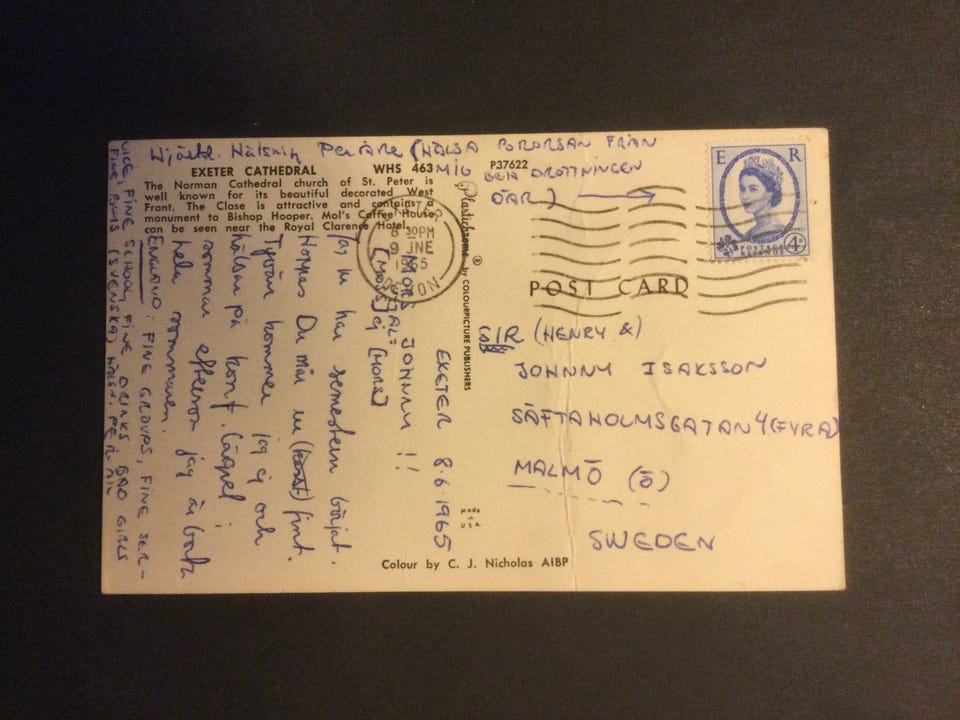 Hjärtl. Hälsning Per Åre (HÄLSA BRORSAN FRÅN
MIG
DÄR)
DROTTNINGEN
EXETER CATHEDRAL WHS 463
P37622
The Norman Cathedral church of St. Peter is
well known for its beautiful decorated West
Front. The Close is attractive and contains a
monument to Bishop Hooper. Mol's Coffee House
can be seen near the Royal Clarence Hotel.
EXETER
8 30PM
9 JNE
1965
DEVON
E R
POSTAGE
REVENUE
4D
Plastichrome ® by COLOURPICTURE PUBLISHERS
POST CARD
SIR (HENRY &)
JOHNNY ISAKSSON
SÄFTAHOLMSGATAN 4 (FYRA)
MALMÖ (Ö)
SWEDEN
MADE
IN
USA
Colour by C. J. Nicholas AIBP
EXETER 8.6.1965
MORS JOHNNY !!
[MORS] ej [MORS]
Jag nu har semestern börjat.
Hoppas Du mår fint.
Tyvärr kommer jag ej och
hälsar på konf. lägret i
sommar eftersom jag är borta
hela sommaren.
ENGLAND: FINE GROUPS, FINE SER-
VICE, FINE SCHOOL, FINE DRINKS BAD GIRLS
FINE BOYS (SVENSKA) HÄLSN. PER